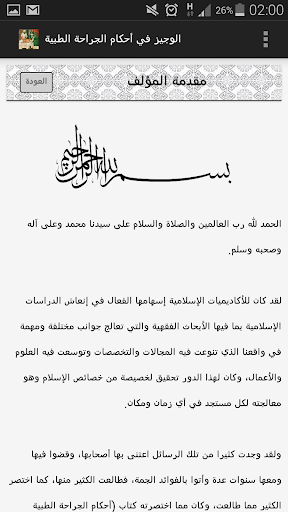 26% 02:00
H
الوجيز في أحكام الجراحة الطبية
مقدمة المؤلف
العودة
بسم الله الرحمن الرحيم
الحمد لله رب العالمين والصلاة والسلام على سيدنا محمد وعلى آله
وصحبه وسلم.
لقد كان للأكاديميات الإسلامية إسهامها الفعال في إنعاش الدراسات
الإسلامية بما فيها الأبحاث الفقهية والتي تعالج جوانب مختلفة ومهمة
في واقعنا الذي تنوعت فيه المجالات والتخصصات وتوسعت فيه العلوم
والأعمال، وكان لهذا الدور تحقيق لخصيصة من خصائص الإسلام وهو
معالجته لكل مستجد في أي زمان ومكان.
ولقد وجدت كثيرا من تلك الرسائل اعتنى بها أصحابها، وقضوا فيها
ومعها سنوات عدة وأتوا بالفوائد الجمة، فطالعت الكثير منها، كما اختصرت
الكثير مما طالعت، وكان مما اختصرته كتاب (أحكام الجراحة الطبية